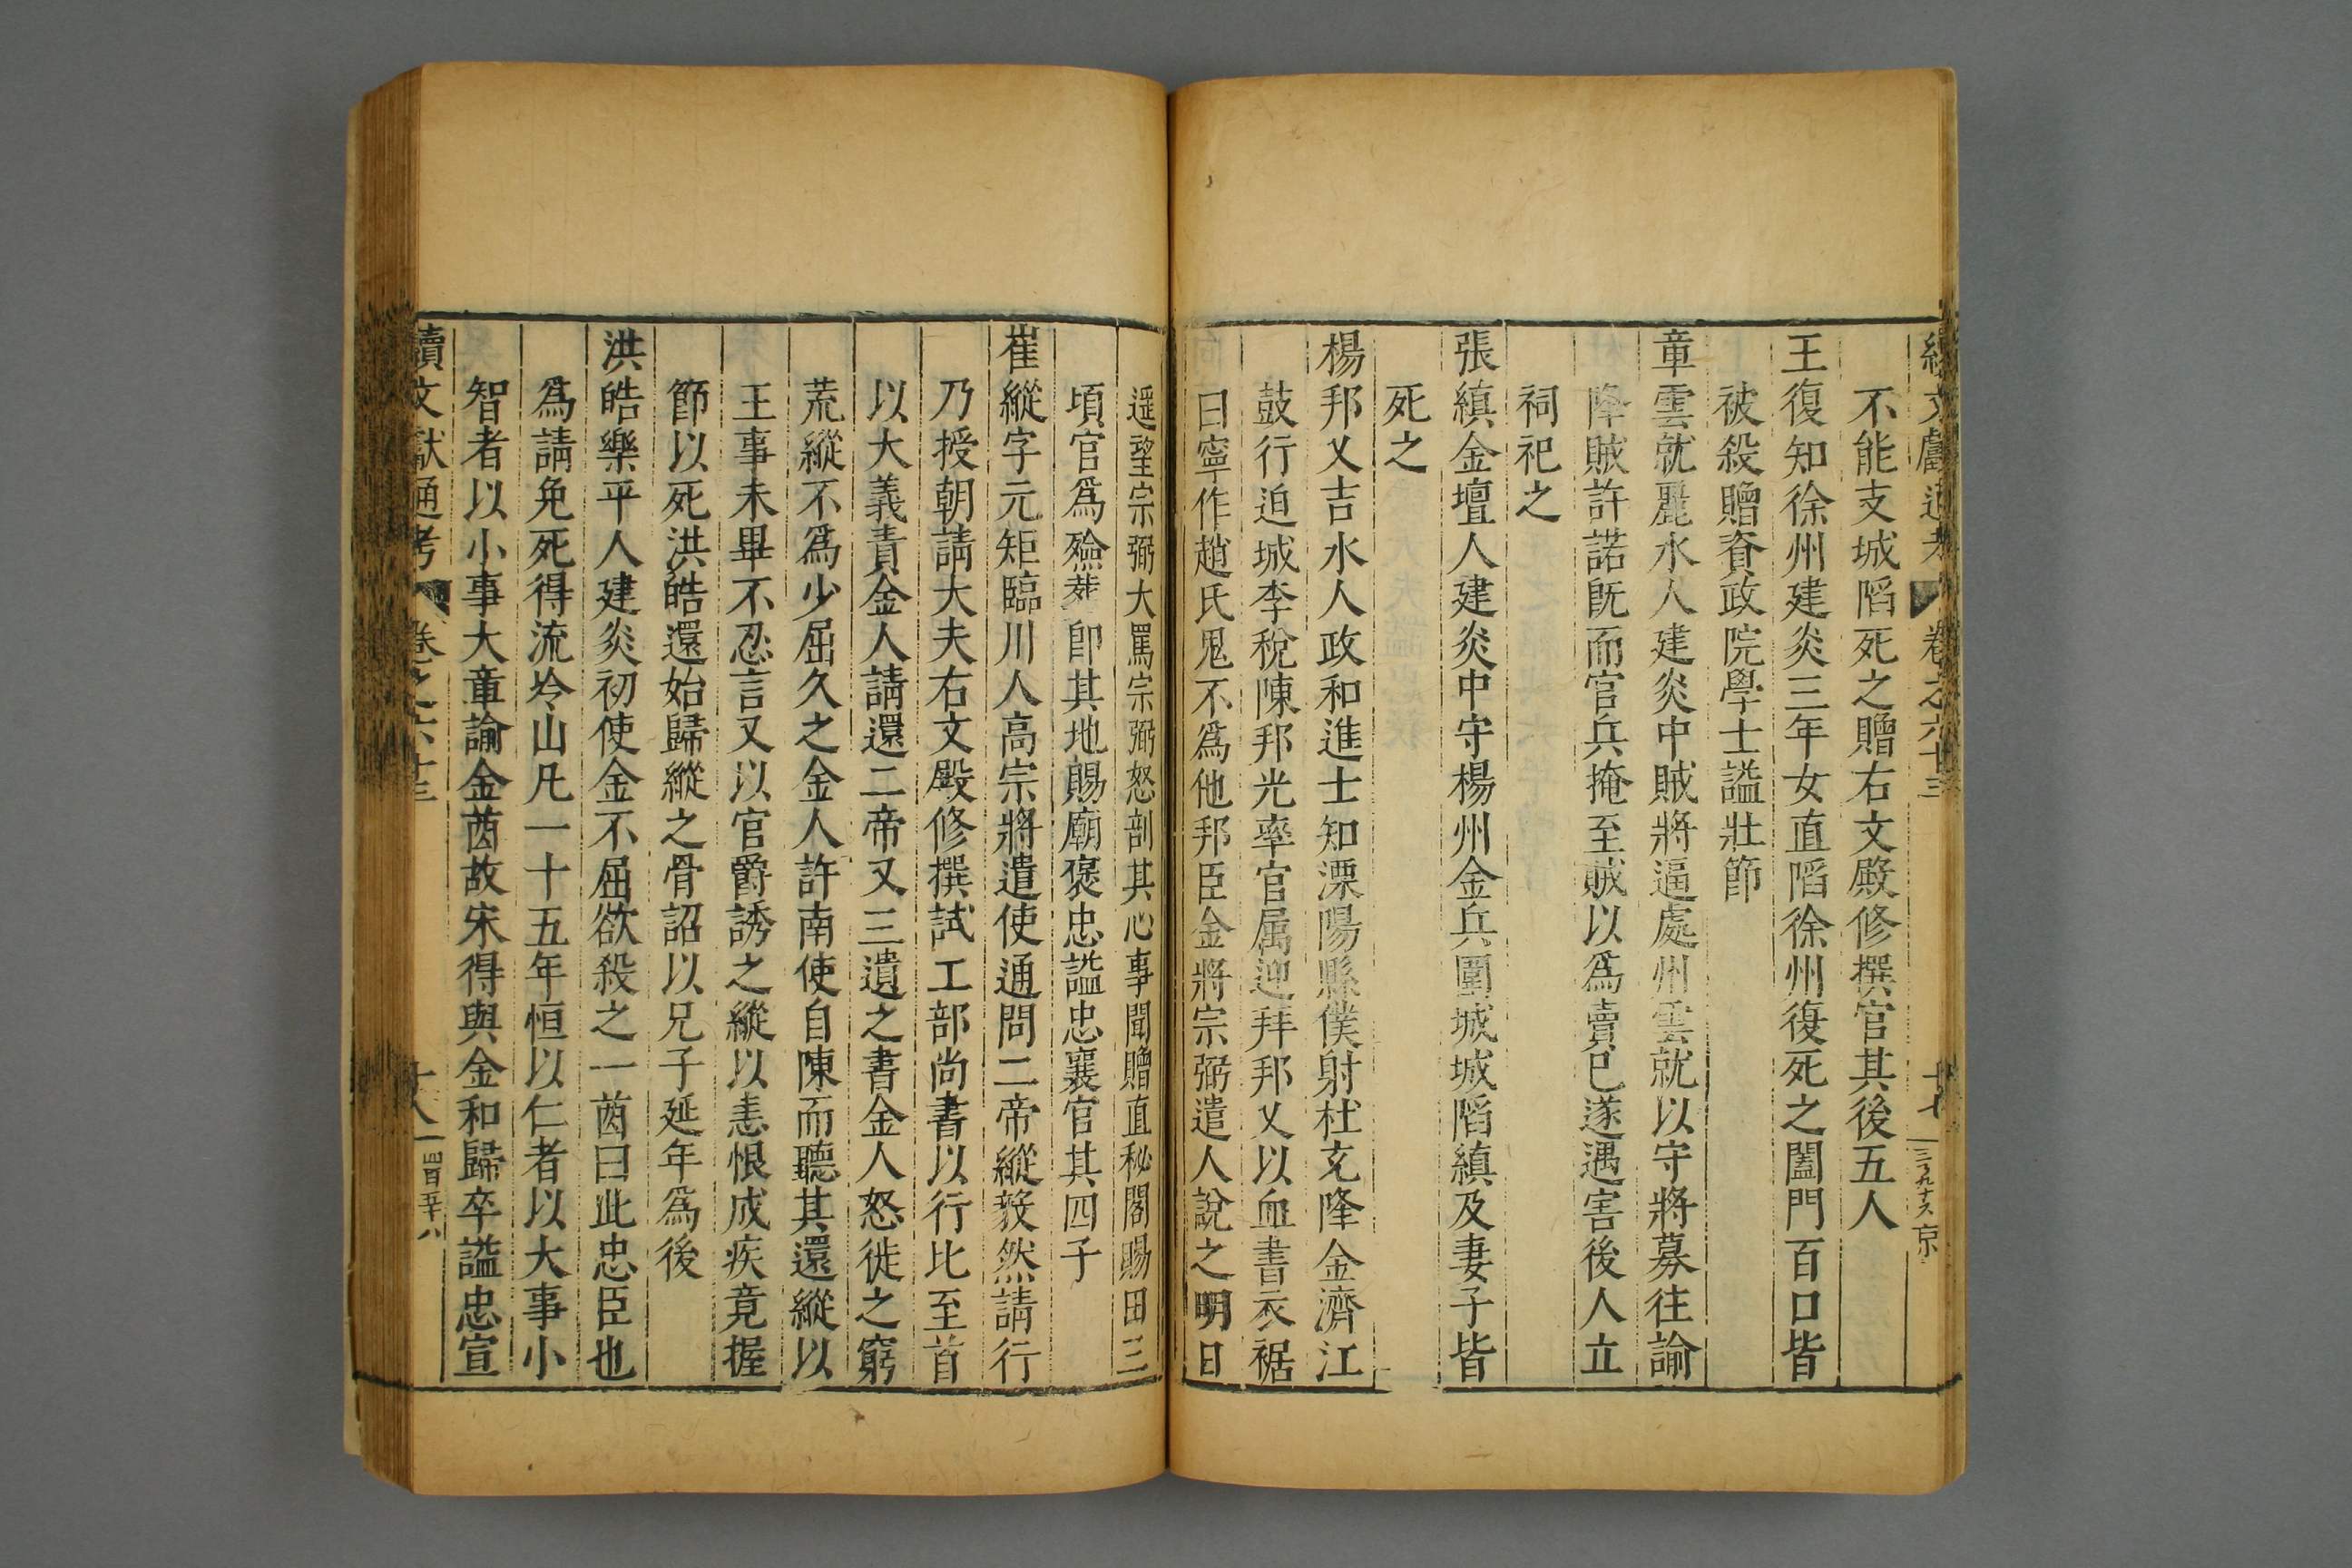 續文獻通考 卷之六十三 十七 京
不能支城䧟死之贈右文殿修撰官其後五人
王復知徐州建炎三年女直䧟徐州復死之闔門百口皆
被殺贈資政院學士謚壯節
章雲就麗水人建炎中賊將逼處州雲就以守將募往諭
降賊許諾旣而官兵掩至賊以爲賣已遂遇害後人立
祠祀之
張縝金壇人建炎中守楊州金兵圍城城䧟縝及妻子皆
死之
楊邦乂吉水人政和進士知溧陽縣僕射杜充降金濟江
鼓行迫城李梲陳邦光率官属迎拜邦乂以血書衣裾
曰寧作趙氏鬼不爲他邦臣金將宗弼遣人說之明日
遥望宗弼大罵宗弼怒剖其心事聞贈直秘閣賜田三
頃官爲殮葬卽其地賜廟褒忠謚忠襄官其四子
崔縱字元矩臨川人高宗將遣使通問二帝縱毅然請行
乃授朝請大夫右文殿修撰試工部尚書以行比至首
以大義責金人請還二帝又三遺之書金人怒徙之窮
荒縱不爲少屈久之金人許南使自陳而聽其還縱以
王事未畢不忍言又以官爵誘之縱以恚恨成疾竟握
節以死洪皓還始歸縱之骨詔以兄子延年爲後
洪皓樂平人建炎初使金不屈欲殺之一酋曰此忠臣也
爲請免死得流冷山凡一十五年恒以仁者以大事小
智者以小事大章諭金酋故宋得與金和歸卒謚忠宣
續文獻通考 卷之六十三 十八 四百五十八